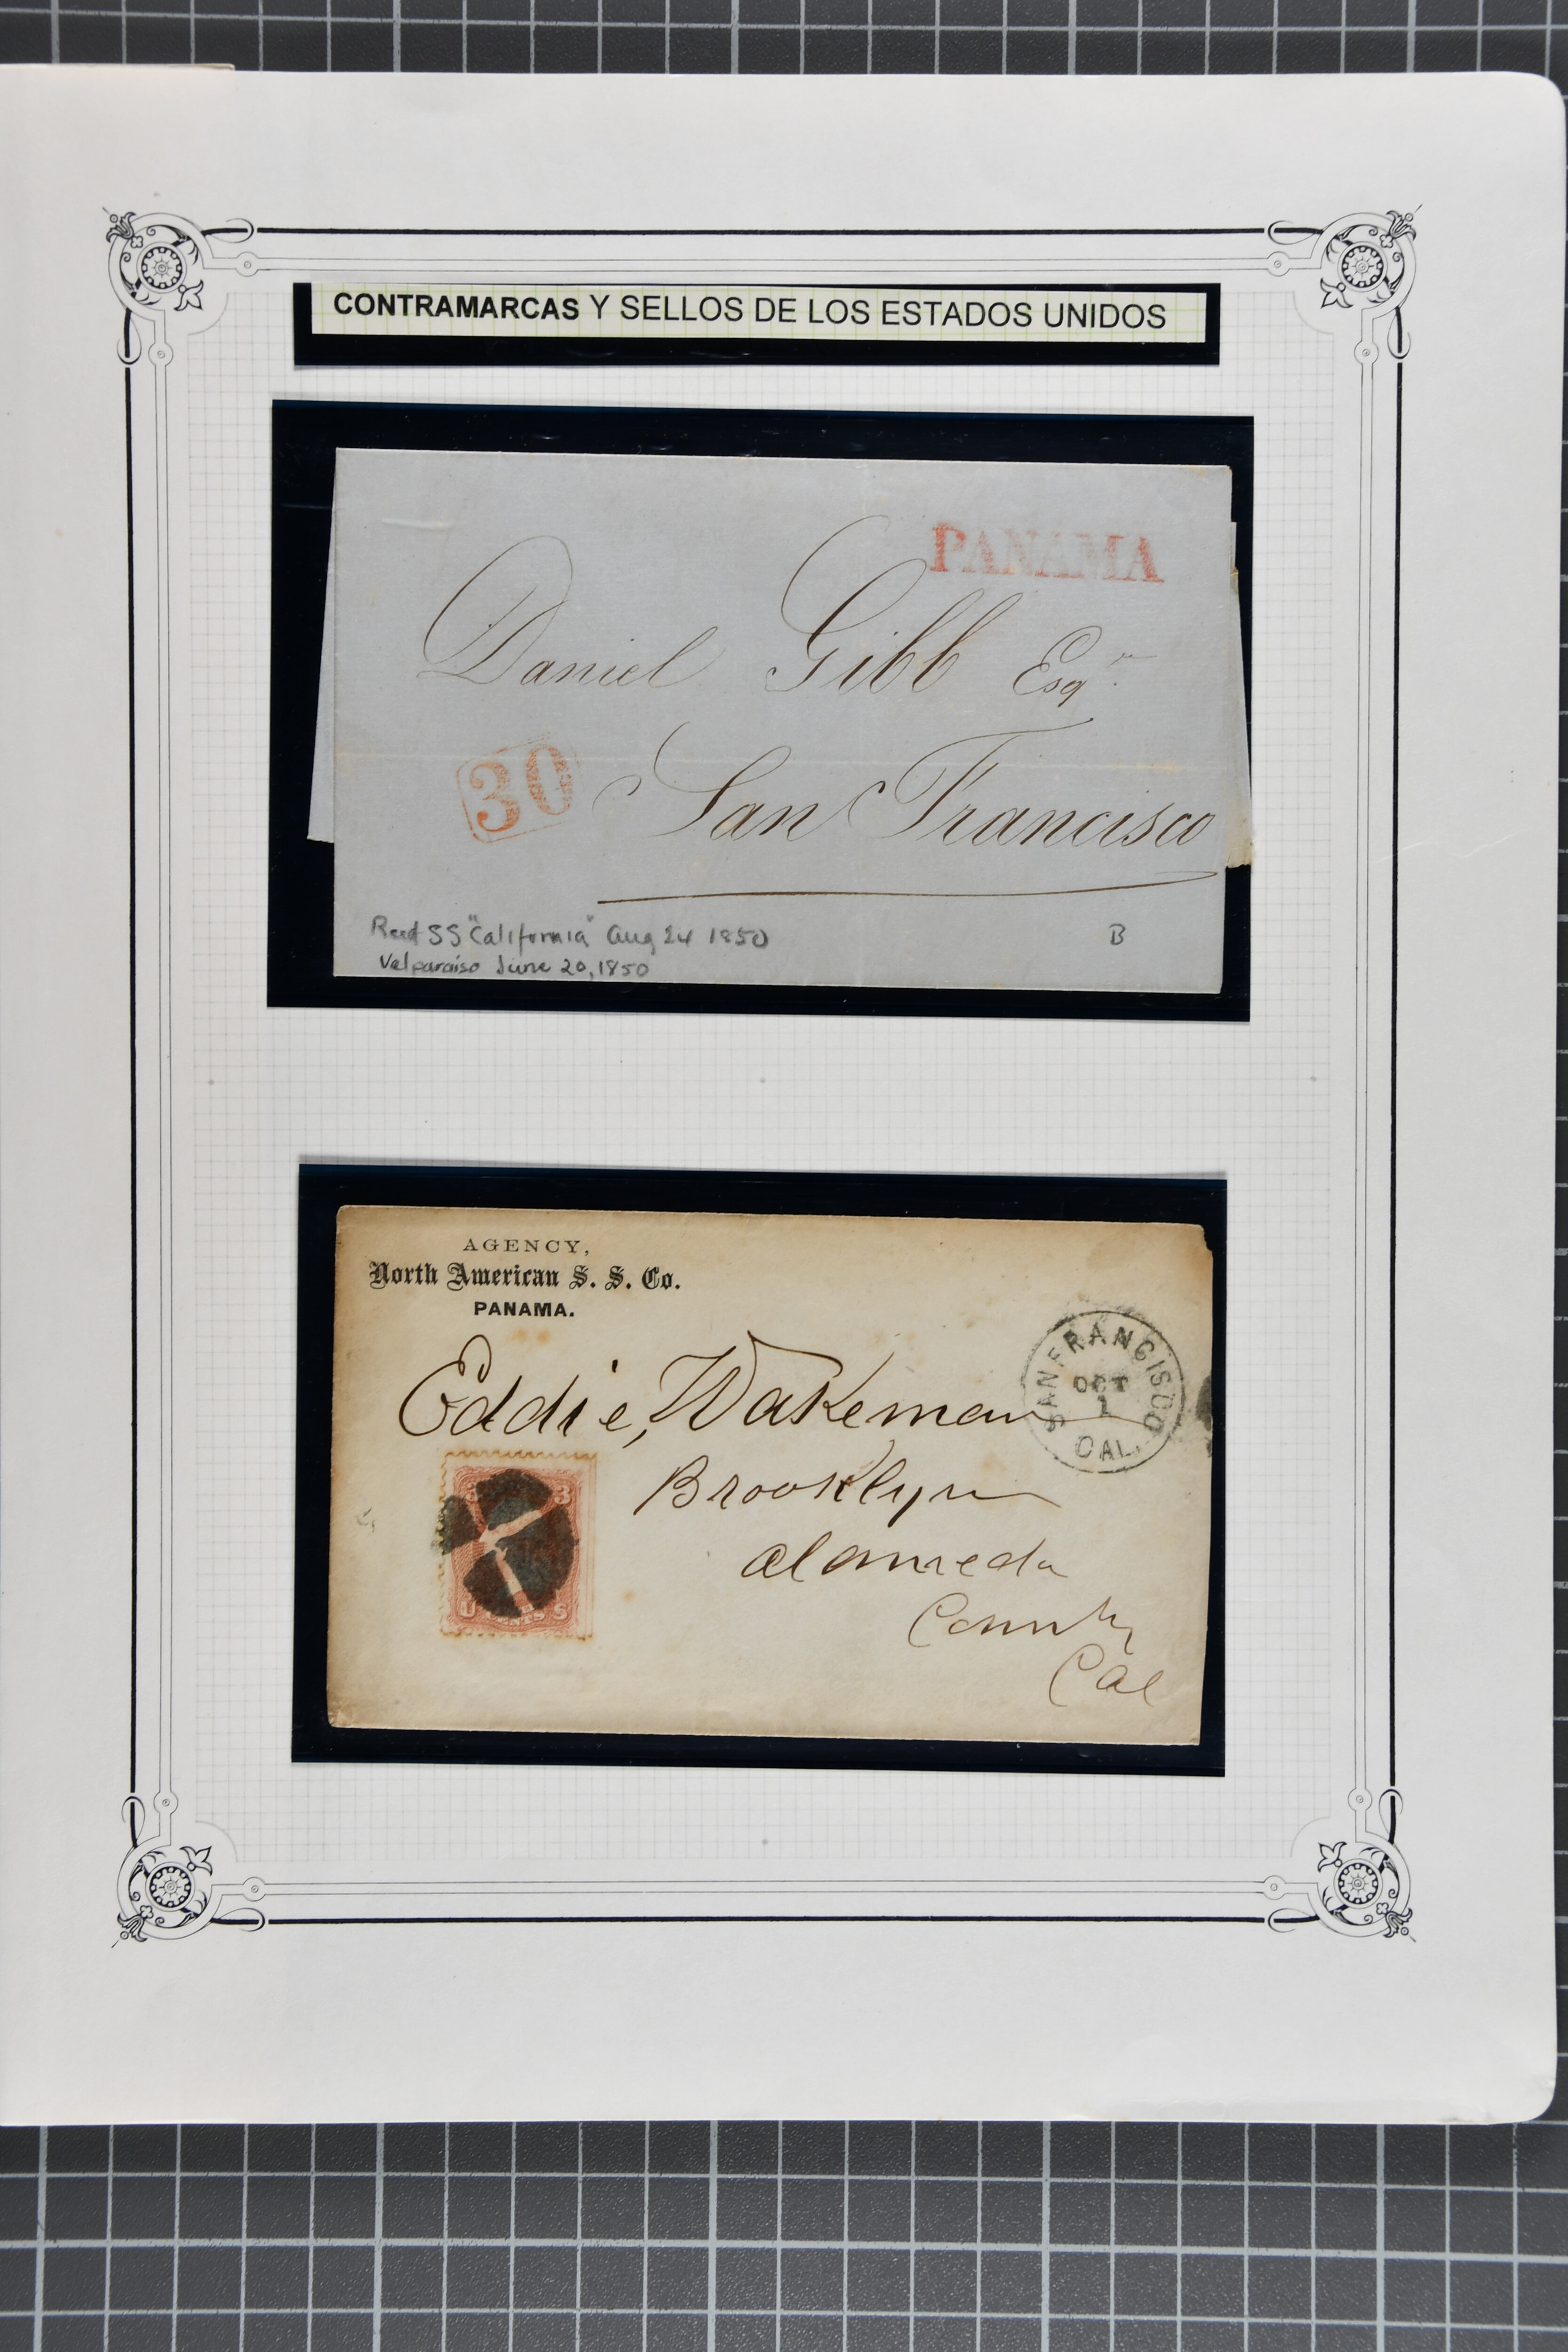 CONTRAMARCAS Y SELLOS DE LOS ESTADOS UNIDOS
PANAMA
Daniel Gibb Esqr.
30
San Francisco
Recd SS "California" Aug 24 1850
B
Valparaiso June 20, 1850
AGENCY,
North American S. S. Co.
PANAMA.
SAN FRANCISCO
OCT
1
CAL.
Eddie, Wakeman
Brooklyn
Alameda
County
Cal
3
U S